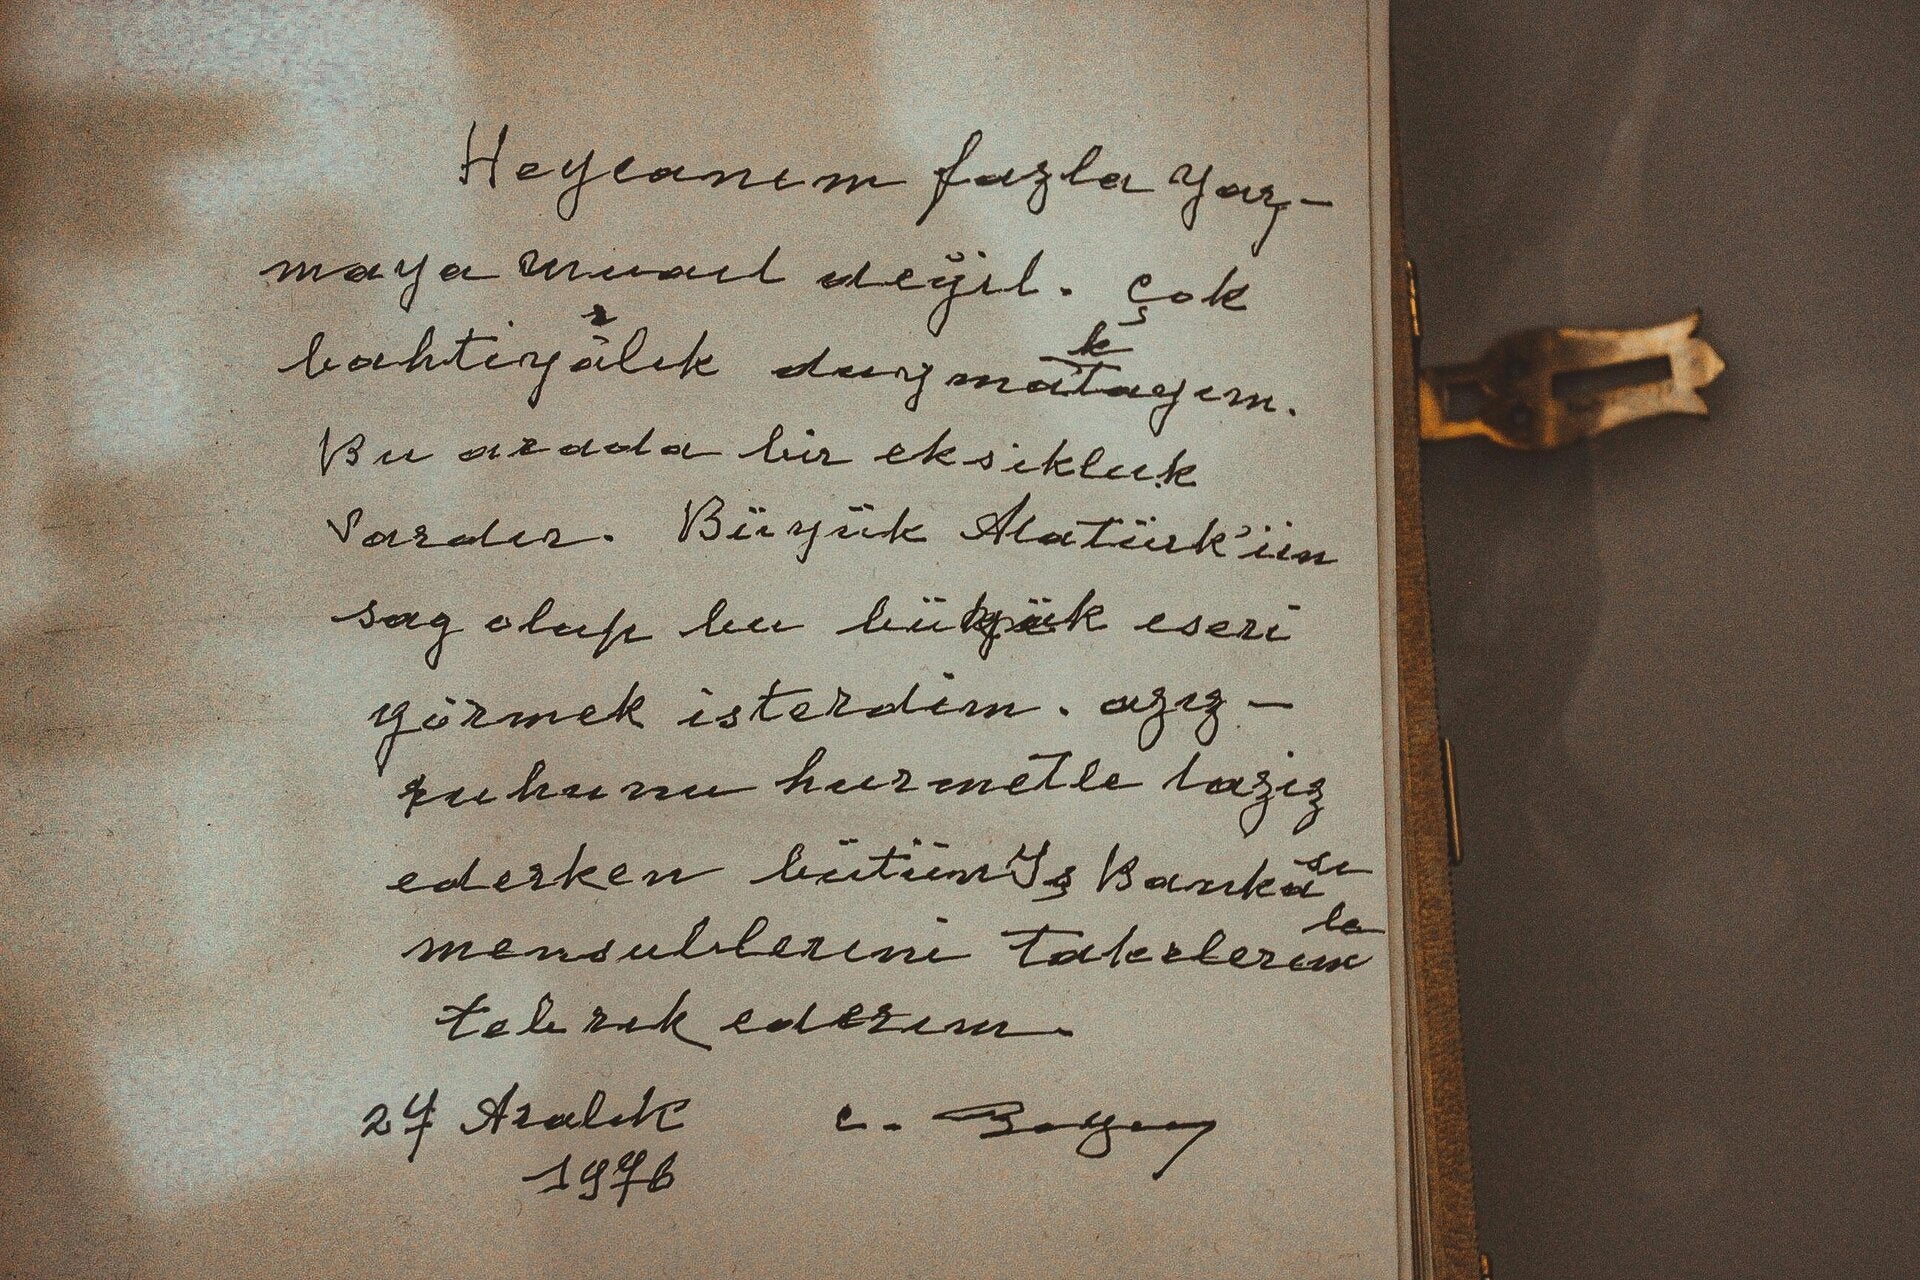 Heycanım fazla yaz-
maya müait değil. Çok
bahtiyârlık duymaktayım.
Bu arada bir eksikluk
vardır. Büyük Atatürk'ün
sag olup bu büyük eseri
görmek isterdim. aziz-
ruhunu hurmetle taziz
ederken bütün İş Bankası
mensublerini takdirlerimle
tebrik ederim.
27 Aralık C. Bayar
1976